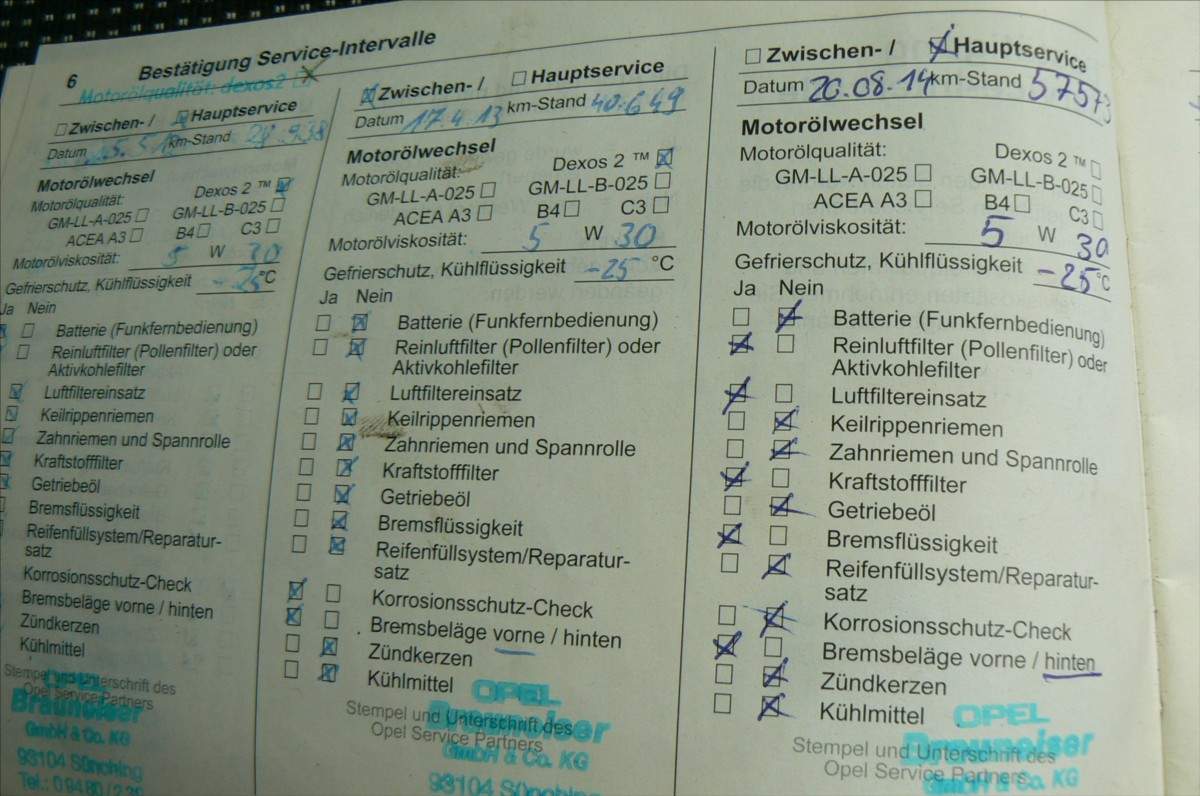 6 Bestätigung Service-Intervalle
Motorölqualität: dexos2
Zwischen- / Hauptservice
Datum km-Stand
Motorölwechsel
Motorölqualität: Dexos 2 ™
GM-LL-A-025 GM-LL-B-025
ACEA A3 B4 C3
Motorölviskosität: 5 W 30
Gefrierschutz, Kühlflüssigkeit -25 °C
Ja Nein
Batterie (Funkfernbedienung)
Reinluftfilter (Pollenfilter) oder
Aktivkohlefilter
Luftfiltereinsatz
Keilrippenriemen
Zahnriemen und Spannrolle
Kraftstofffilter
Getriebeöl
Bremsflüssigkeit
Reifenfüllsystem/Reparatur-
satz
Korrosionsschutz-Check
Bremsbeläge vorne / hinten
Zündkerzen
Kühlmittel
Stempel und Unterschrift des
Opel Service Partners
OPEL
Brauneiser
GmbH & Co. KG
93104 Sünching
Tel.: 0 94 80 /
Zwischen- / Hauptservice
Datum 17.4.13 km-Stand 40.649
Motorölwechsel
Motorölqualität: Dexos 2 ™
GM-LL-A-025 GM-LL-B-025
ACEA A3 B4 C3
Motorölviskosität: 5 W 30
Gefrierschutz, Kühlflüssigkeit -25 °C
Ja Nein
Batterie (Funkfernbedienung)
Reinluftfilter (Pollenfilter) oder
Aktivkohlefilter
Luftfiltereinsatz
Keilrippenriemen
Zahnriemen und Spannrolle
Kraftstofffilter
Getriebeöl
Bremsflüssigkeit
Reifenfüllsystem/Reparatur-
satz
Korrosionsschutz-Check
Bremsbeläge vorne / hinten
Zündkerzen
Kühlmittel
Stempel und Unterschrift des
Opel Service Partners
OPEL
Brauneiser
GmbH & Co. KG
93104 Sünching
Zwischen- / Hauptservice
Datum 20.08.14 km-Stand 57573
Motorölwechsel
Motorölqualität: Dexos 2 ™
GM-LL-A-025 GM-LL-B-025
ACEA A3 B4 C3
Motorölviskosität: 5 W 30
Gefrierschutz, Kühlflüssigkeit -25 °C
Ja Nein
Batterie (Funkfernbedienung)
Reinluftfilter (Pollenfilter) oder
Aktivkohlefilter
Luftfiltereinsatz
Keilrippenriemen
Zahnriemen und Spannrolle
Kraftstofffilter
Getriebeöl
Bremsflüssigkeit
Reifenfüllsystem/Reparatur-
satz
Korrosionsschutz-Check
Bremsbeläge vorne / hinten
Zündkerzen
Kühlmittel
Stempel und Unterschrift des
Opel Service Partners
OPEL
Brauneiser
GmbH & Co. KG